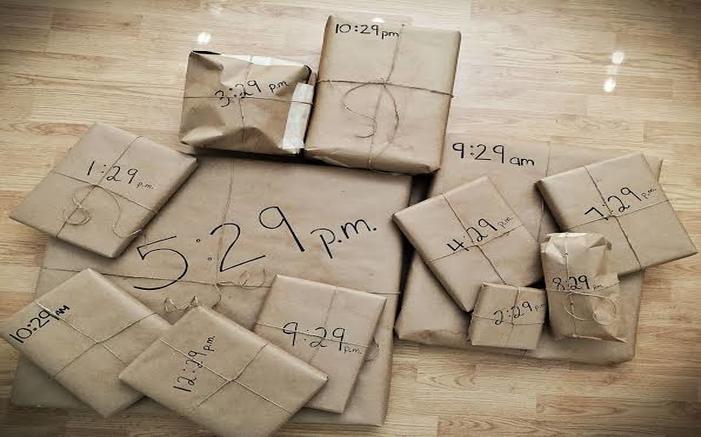 10:29 pm
3:29 p.m.
9:29 am
1:29 p.m.
7:29 p.m.
5:29 p.m.
4:29 p.m.
8:29 p.m.
2:29 p.m.
10:29 AM
9:29 p.m.
12:29 p.m.